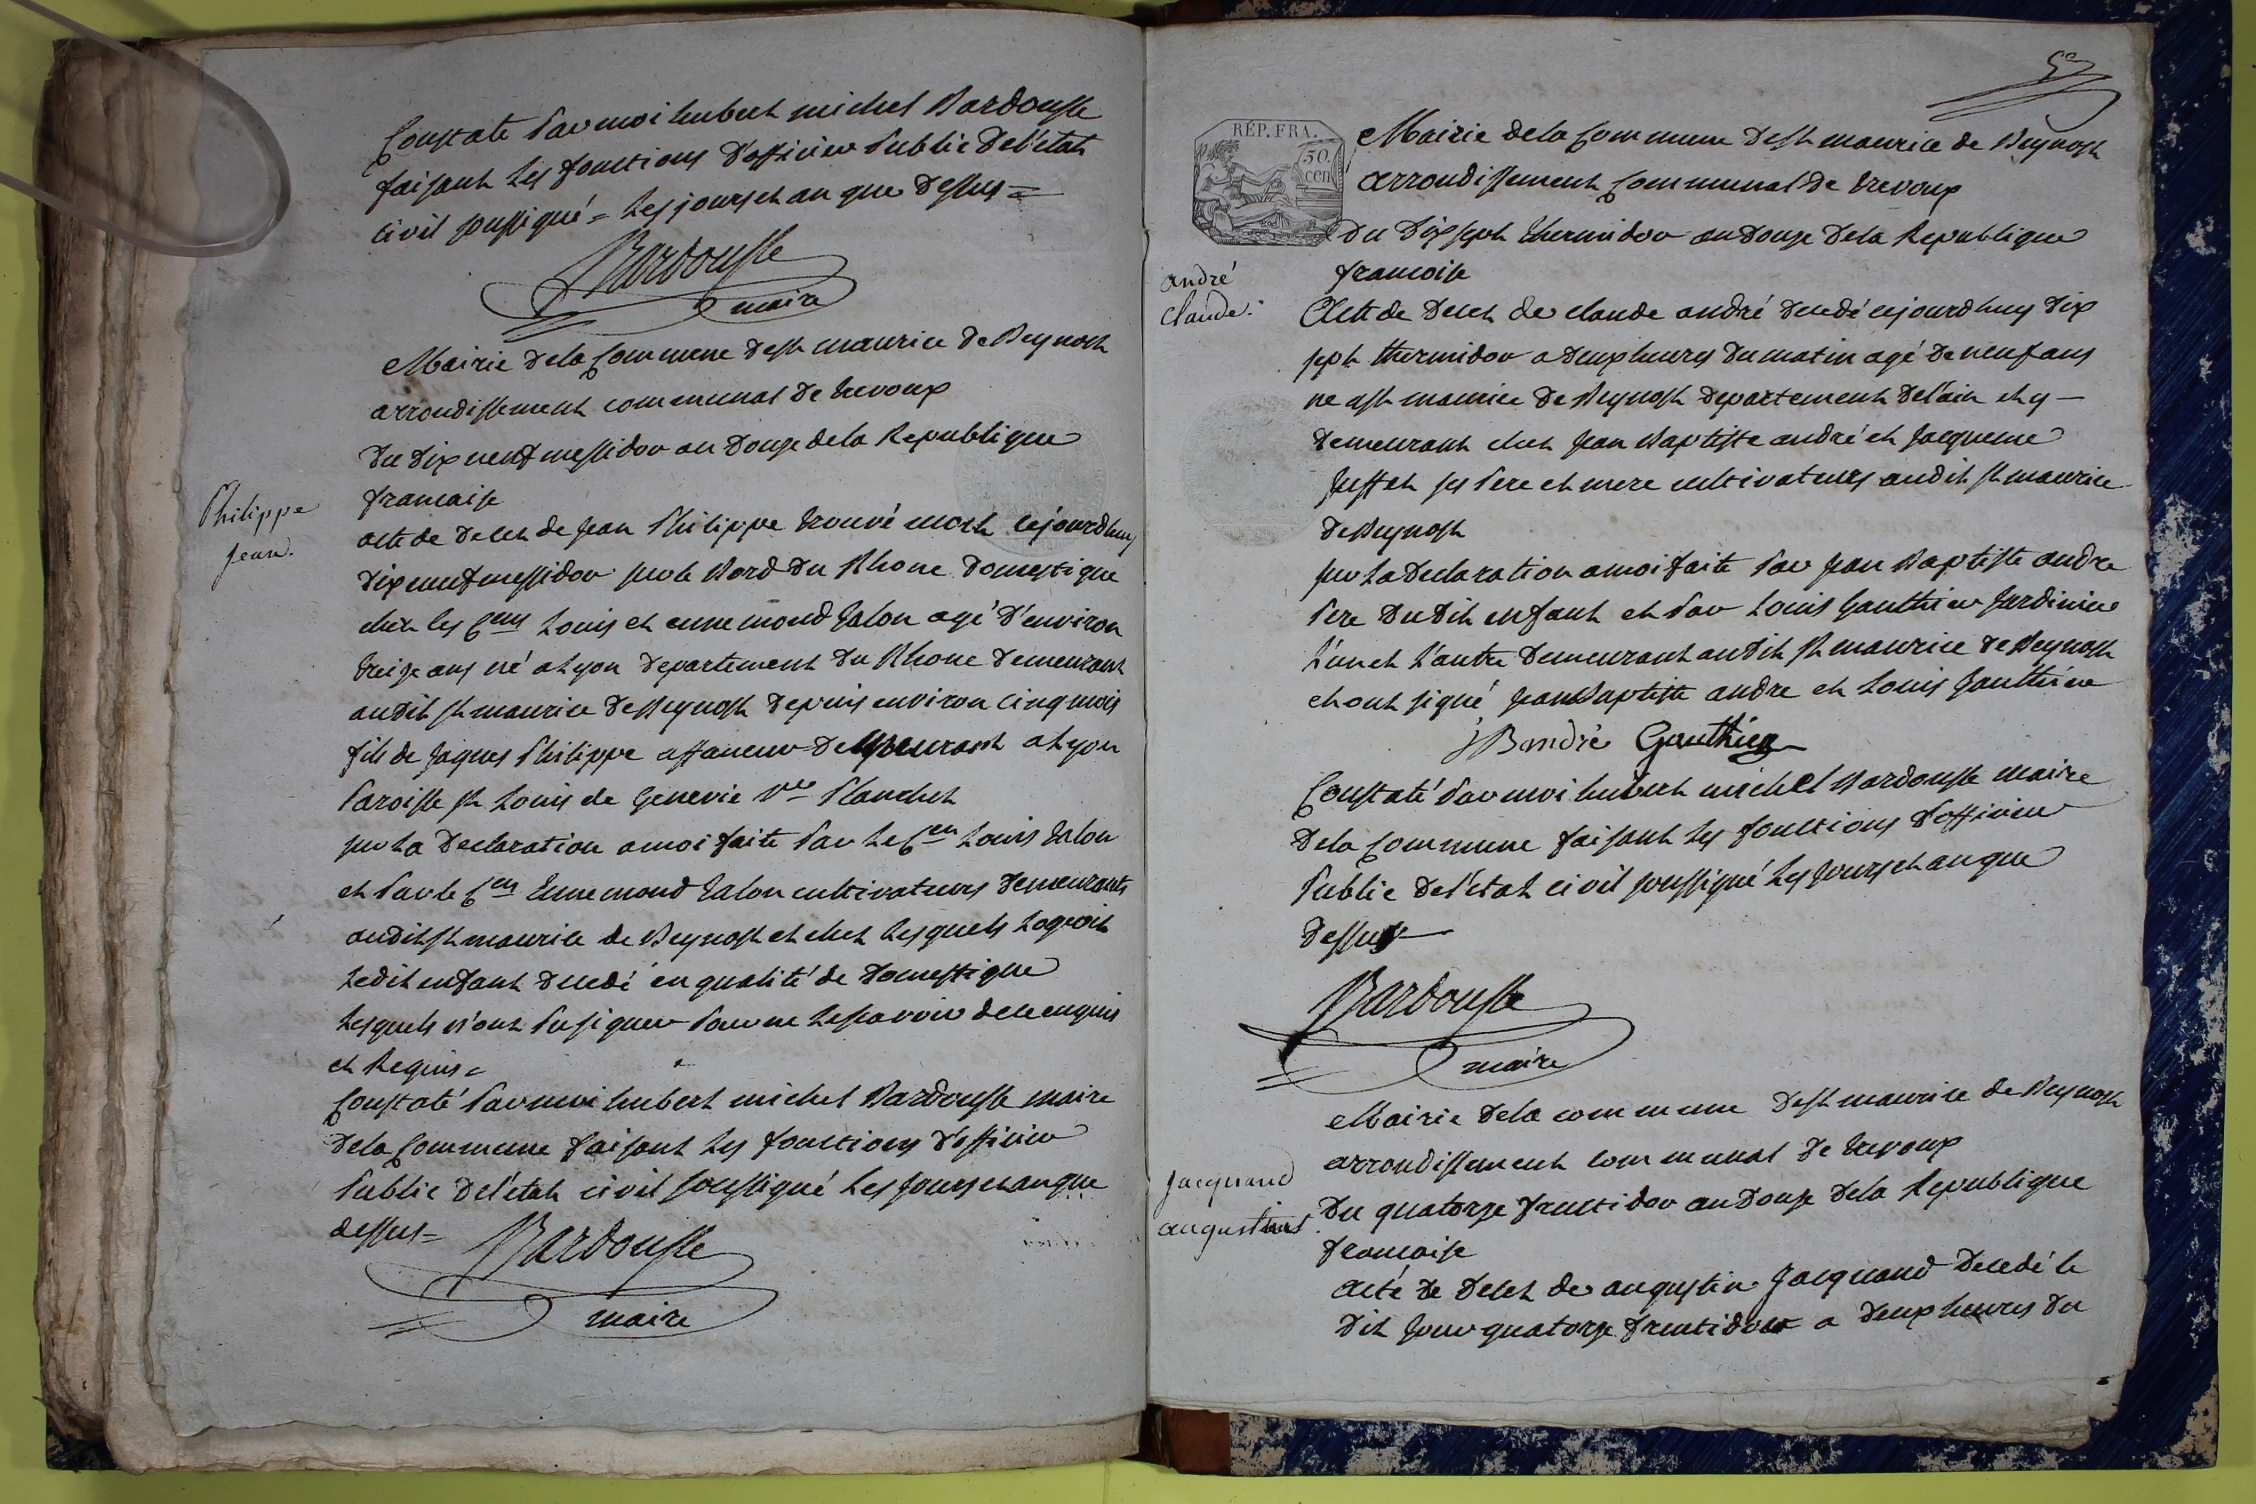 Constate par moi hubert michel Bardousse
faisant les fonctions d'officier public de l'etat
civil soussigné = les jours et an que dessus =
Bardousse
maire
Mairie de la Commune de st maurice de Beynost
arrondissement communal de trevoux
Du dix neuf messidor an douze de la Republique
francaise
Philippe
jean.
acte de deces de jean Philippe trouvé mort cejourdhuy
dix neuf messidor sur le Bord du Rhone domestique
chez les Cens Louis et ennemond Jalon agé d'environ
treize ans né a Lyon departement du Rhone demeurant
audit st maurice de Beynost depuis environ cinq mois
fils de jaques Philippe affaneur demeurant a Lyon
Paroisse st Louis de Genevie Ve Planchet
sur la declaration a moi faite par le Cen Louis Jalon
et par le Cen Ennemond Jalon cultivateurs demeurants
audit st maurice de Beynost et chez lesquels logeoit
ledit enfant decedé en qualité de domestique
lesquels n'ont su signer pour ne le scavoir de ce enquis
et Requis =
Constaté par moi hubert michel Bardousse maire
de la Commune faisant les fonctions d'officier
public de l'etat civil soussigné les jours et an que
dessus =
Bardousse
maire
RÉP. FRA.
50.
cen
Mairie de la Commune de st maurice de Beynost
arrondissement Communal de trevoux
Du dix sept thermidor an douze de la Republique
francoise
andré
claude.
Acte de deces de claude andré decedé cejourdhuy dix
sept thermidor a deux heures du matin agé de neuf ans
ne a st maurice de Beynost departement de l'ain et y -
demeurant chez jean Baptiste andré et jacqueme
Juffet ses pere et mere cultivateurs audit st maurice
de Beynost
sur la declaration a moi faite par jean Baptiste andre
pere dudit enfant et par Louis Gauthier jardinier
l'un et l'autre demeurant audit st maurice de Beynost
et ont signé jean Baptiste andre et Louis Gauthier
jBandré Gauthier
Constaté par moi hubert michel Bardousse maire
de la Commune faisant les fonctions d'officier
public de l'etat civil soussigné les jours et an que
dessus
Bardousse
maire
Mairie de la commune de st maurice de Beynost
arrondissement communal de trevoux
jacquand
augustin
Du quatorze fructidor an douze de la Republique
francaise
acte de deces de augustin jacquand decedé le
dit jour quatorze fructidor a deux heures du